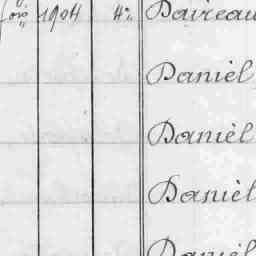 1904 4% Daireau
Danièl
Danièl
Danièl
Danièl